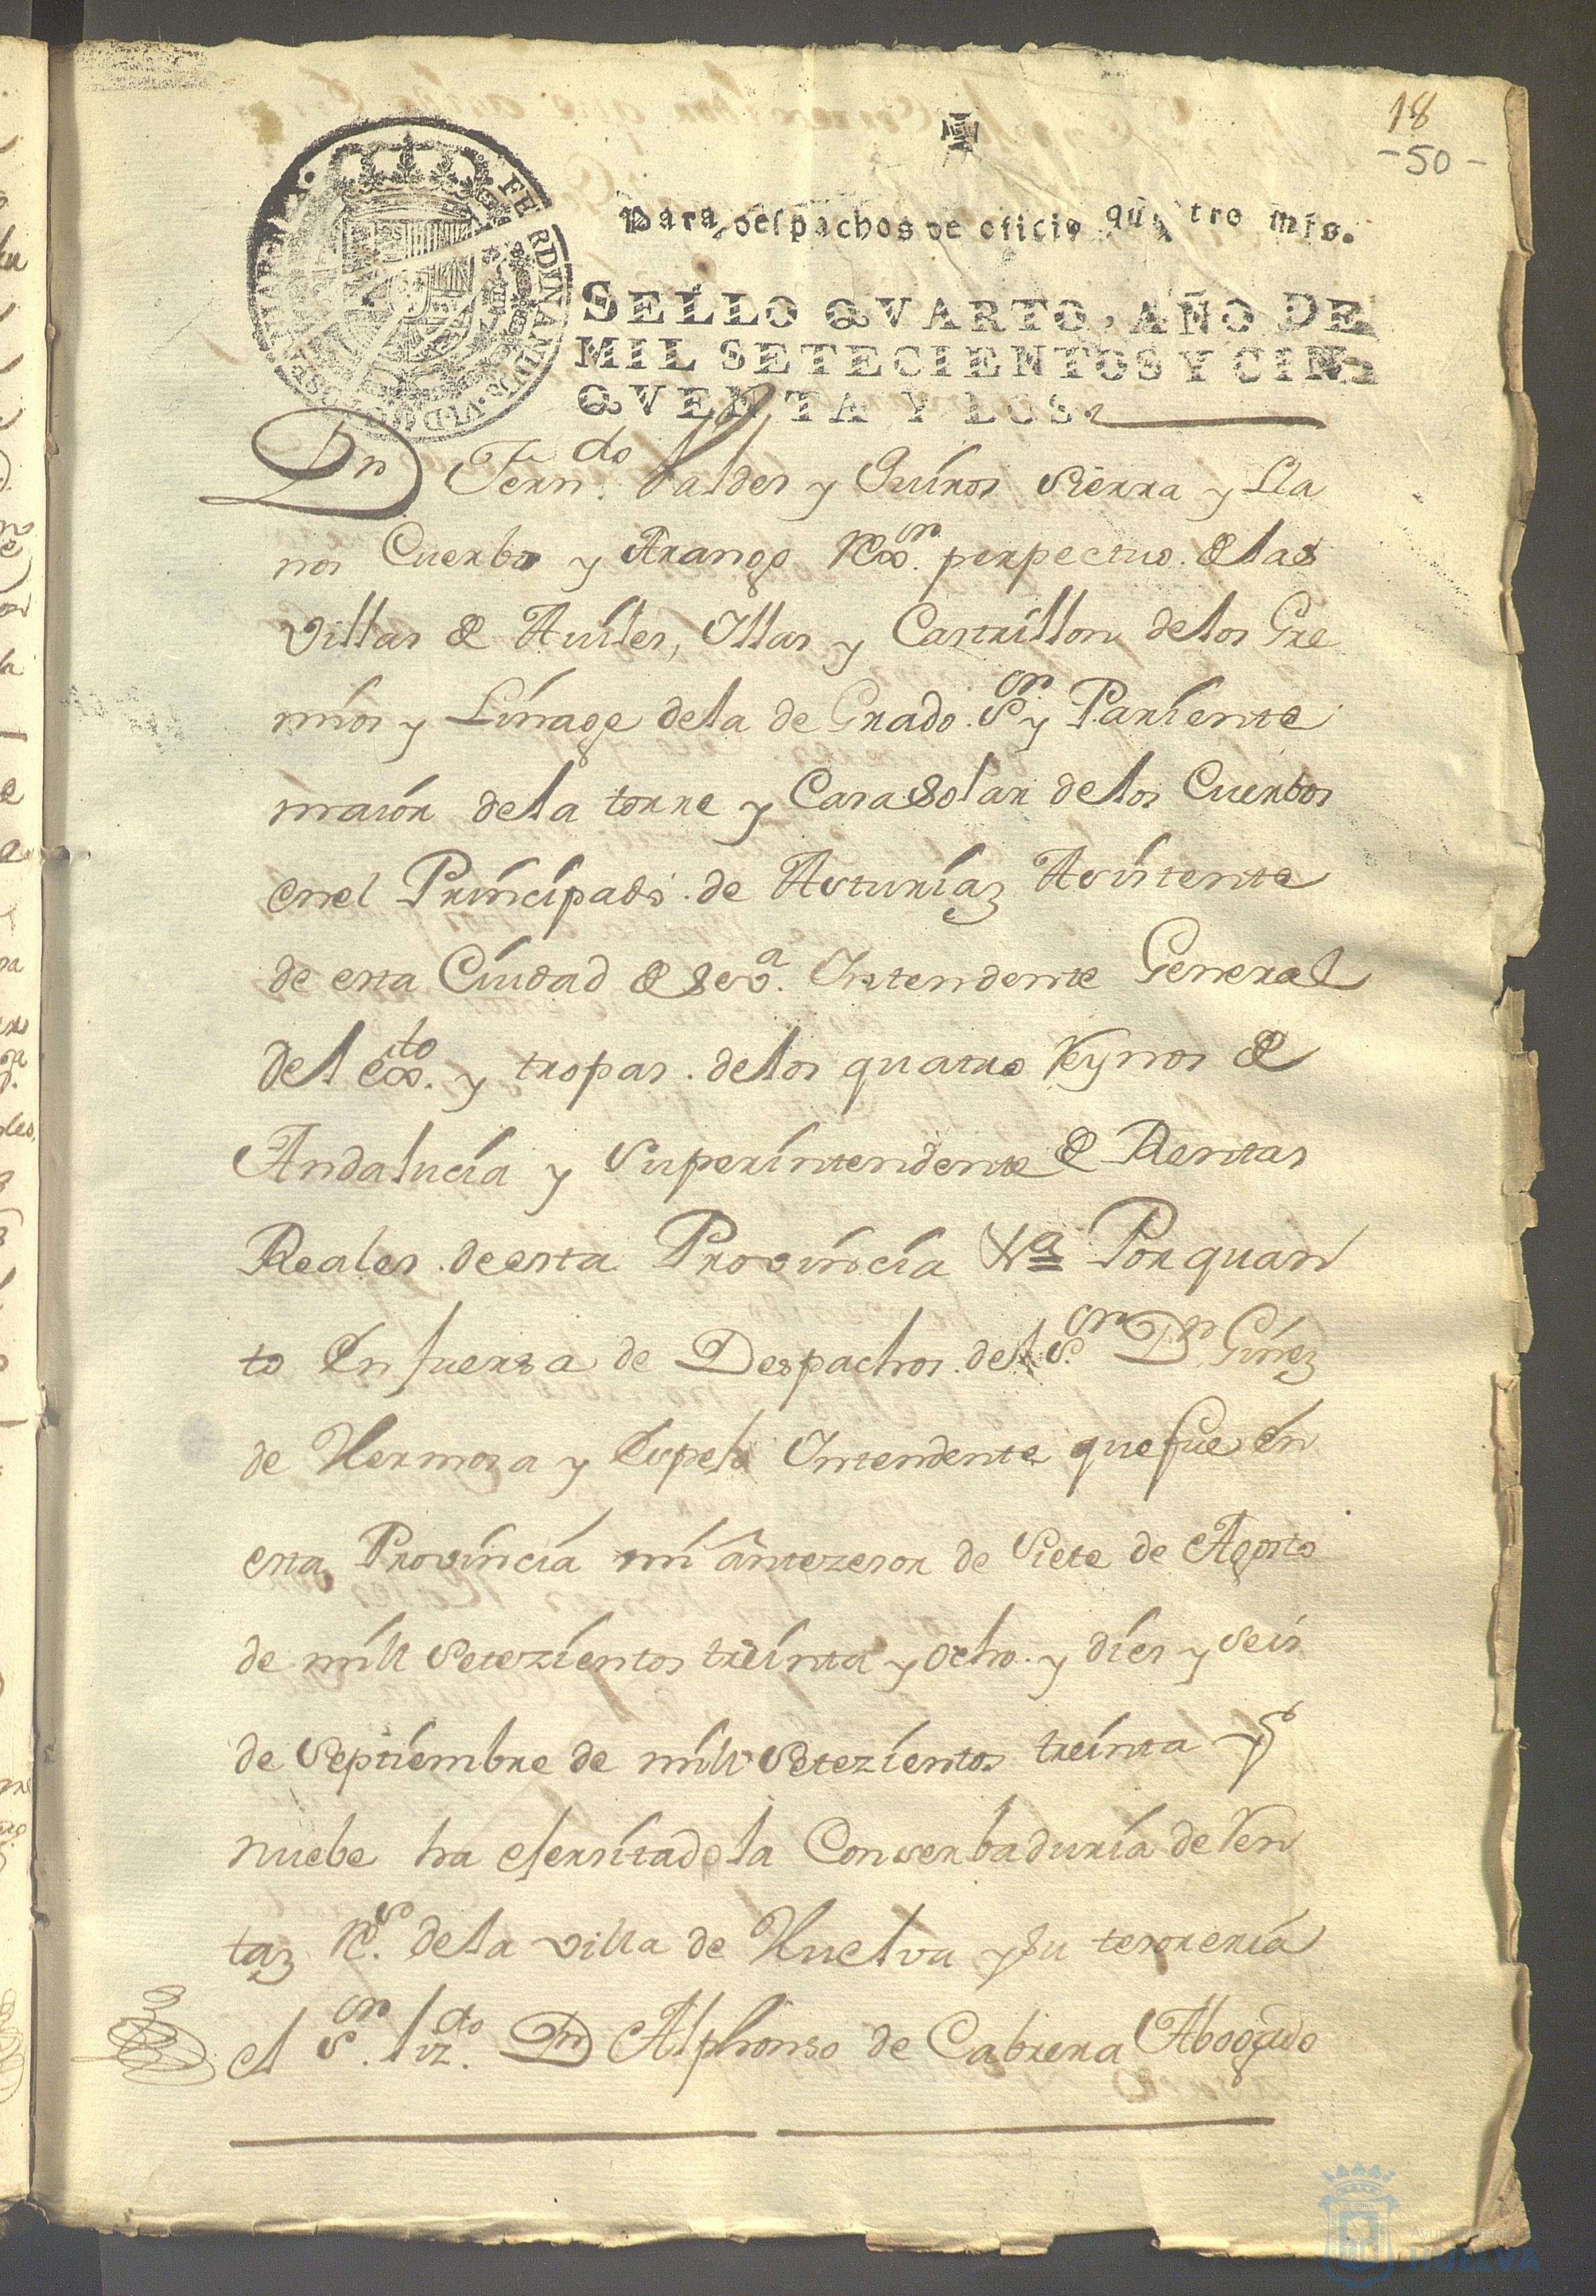 18
-50-
Para despachos de oficio quatro mrs.
SELLO QVARTO, AÑO DE
MIL SETECIENTOS Y CIN-
QVENTA Y DOS.
Dn Fern.do Valdes y Quiros Sierra y Lla
nos Cuerbo y Arango Rex.or perpectuo de las
Villas de Auiles, Illas y Castrillon de los Gre
mios y Linage de la de Grado. S.or y Pariente
maior de la torre y Casa Solar de los Cuerbos
en el Principado. de Asturias Asistente
de esta Ciudad de Sev.a Intendente General
del ex.to y tropas. de los quatro Reynos de
Andalucia y Superintendente de Rentas
Reales. de esta Provincia &a Por quan
to En fuersa de Despachos. del S.or D.n Gines
de Hermosa y Espejo Intendente que fue en
esta Provincia mi antezesor de Siete de Agosto
de mill Setezientos treinta y ocho. y dies y seis
de Septiembre de mill Setezientos treinta y
nuebe ha esersitado la Conserbaduria de Ren
tas R.s de la villa de Huelva y su tesoreria
el S.or liz.do Dn Alphonso de Cabrera Abogado
Ayuntamiento
HUELVA